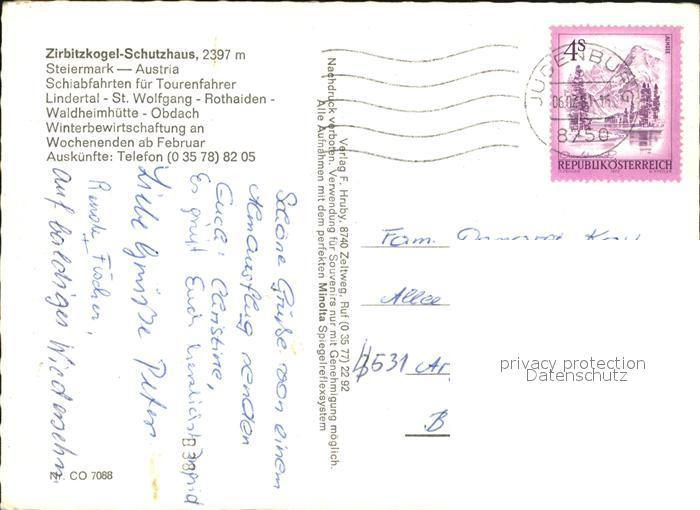 Zirbitzkogel-Schutzhaus, 2397 m
Steiermark — Austria
Schiabfahrten für Tourenfahrer
Lindertal - St. Wolfgang - Rothaiden -
Waldheimhütte - Obdach
Winterbewirtschaftung an
Wochenenden ab Februar
Auskünfte: Telefon (0 35 78) 82 05
Schöne Grüße von einem
Almausflug senden
Euch: Christine,
Es grüßt Euch herzlichst Ingrid
Liebe Grüsse Peter
Renate Fischer,
auf baldiges Wiedersehn
Nr. CO 7088
B 38
Verlag F. Hruby, 8740 Zeltweg, Ruf (0 35 77) 22 92
Nachdruck verboten. Verwendung für Souvenirs nur mit Genehmigung möglich.
Alle Aufnahmen mit dem perfekten Minolta Spiegelreflexsystem
4 S
ALMSEE
REPUBLIK ÖSTERREICH
JUDENBURG
8750
Fam.
Allee
4531
B
privacy protection
Datenschutz